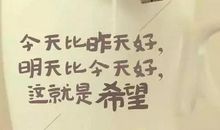 今天比昨天好，
明天比今天好，
这就是希望